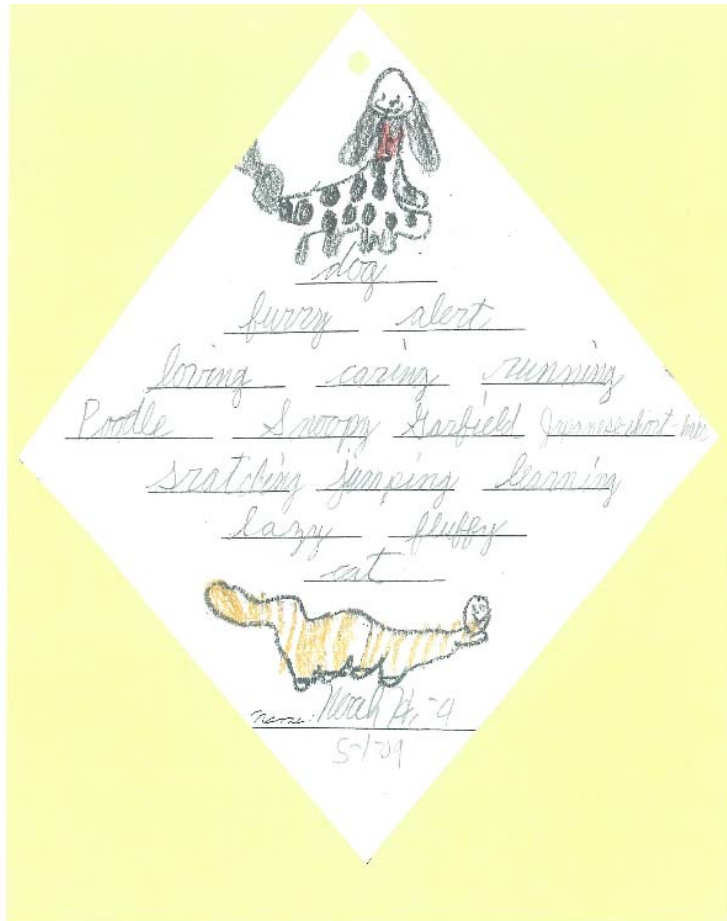 dog
furry alert
loving caring running
Poodle Snoopy Garfield Japanese short-hair
sratching jumping learning
lazy fluffy
cat
name: Norah
5-1-09